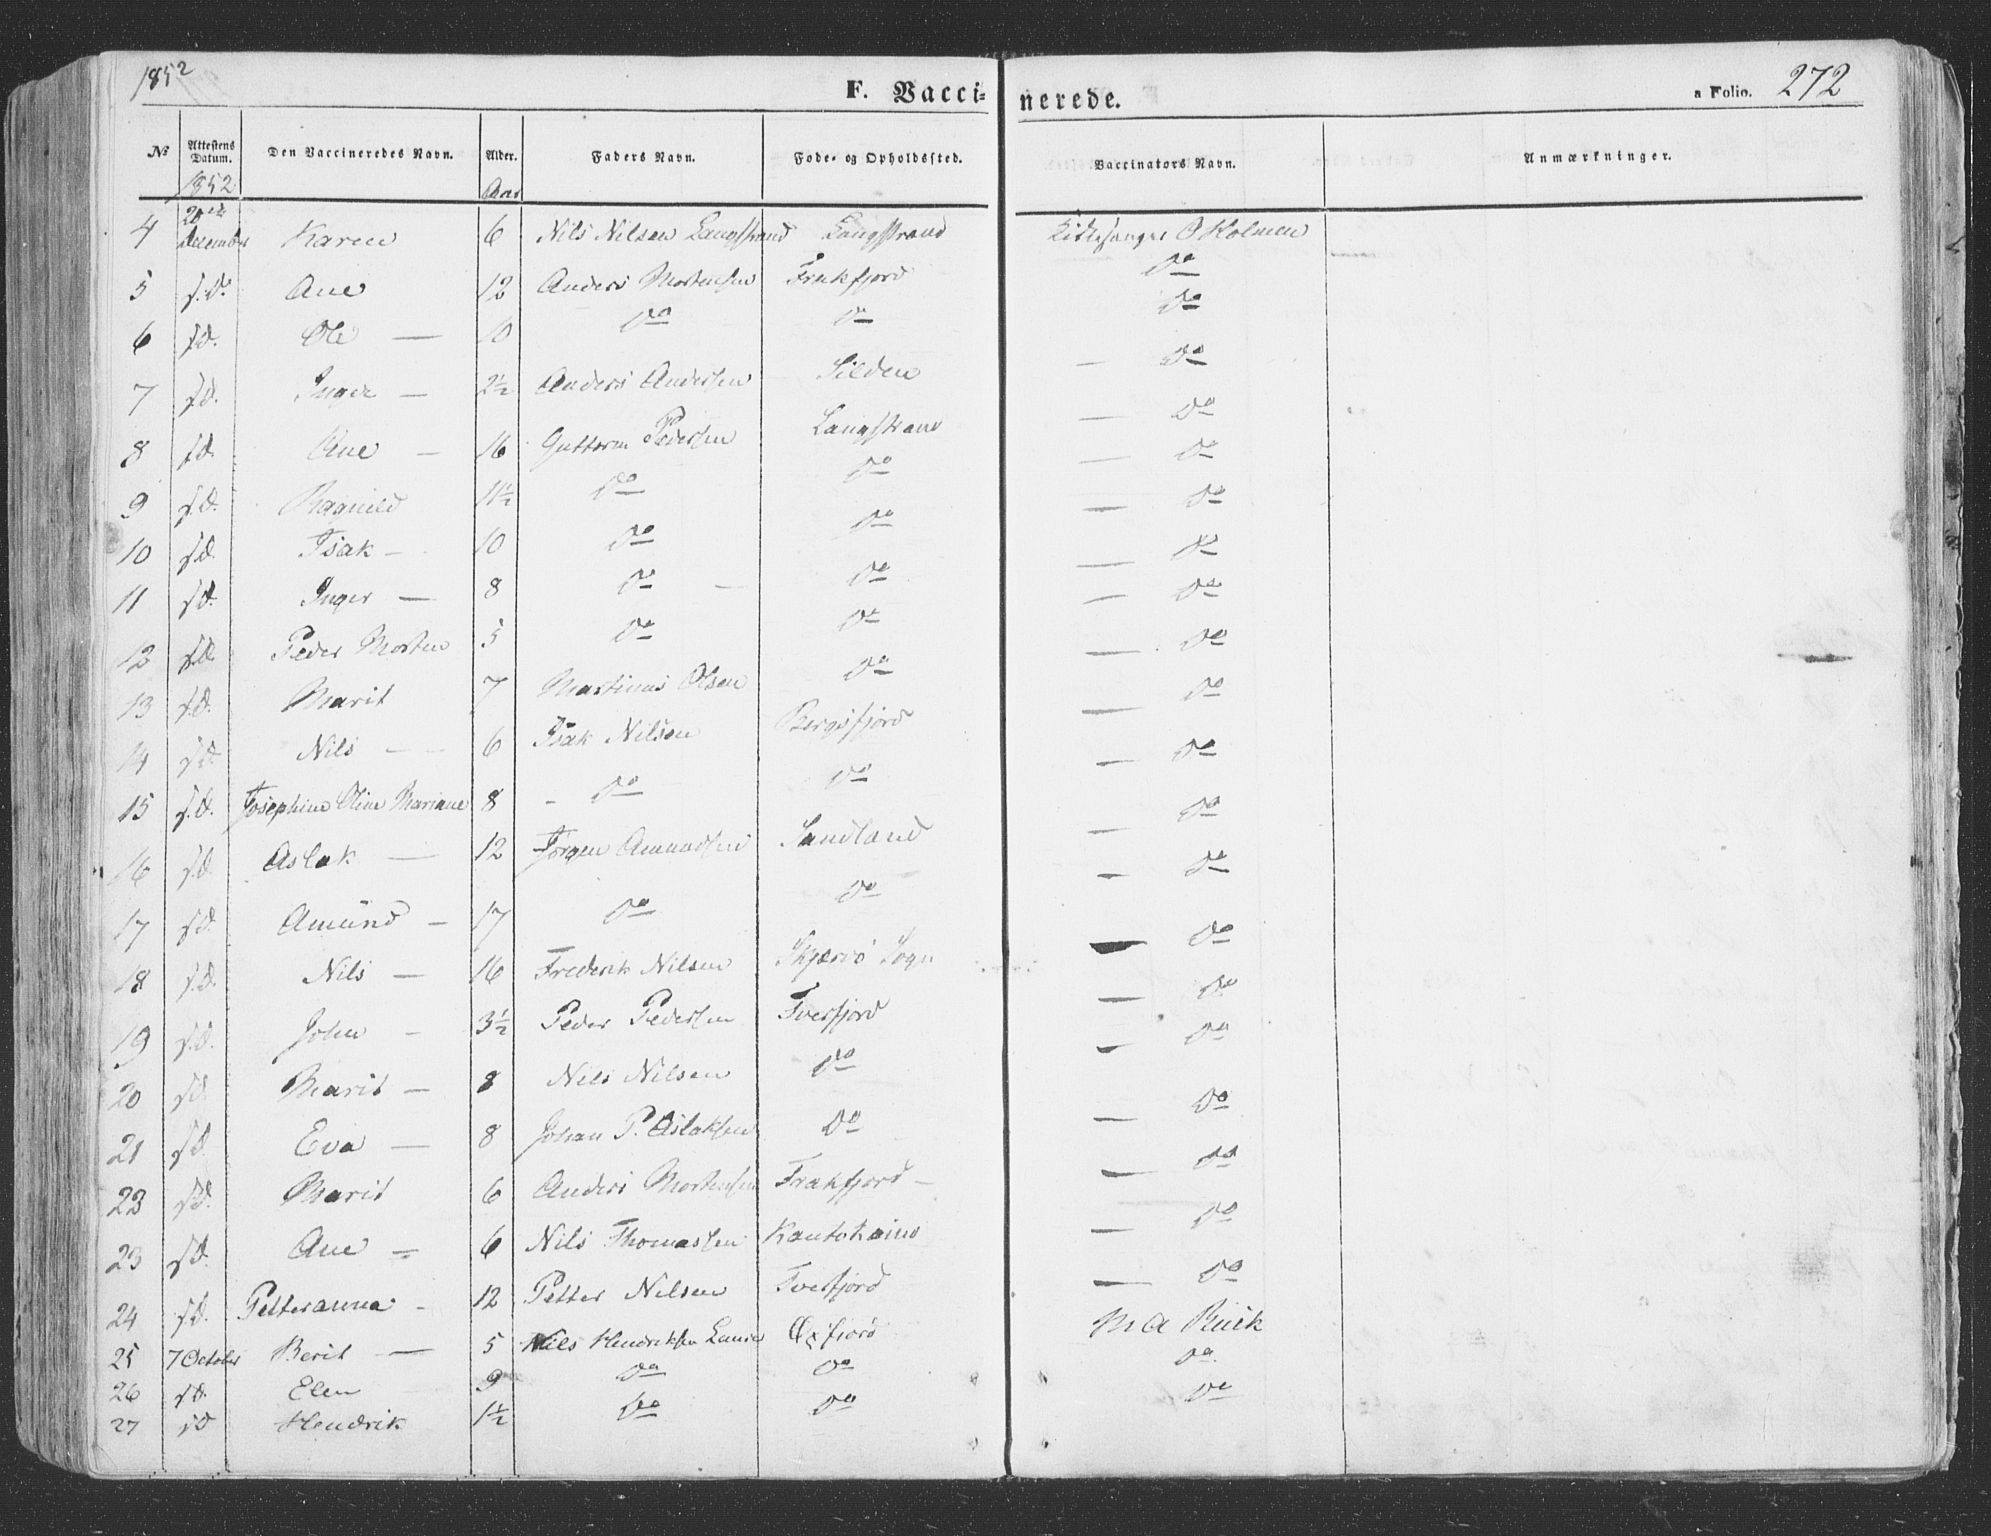 1852
F. Vacci- nerede.
a Folio. 272
No Attestens Datum. Den Vaccineredes Navn. Alder. Faders Navn. Føde- og Opholdssted. Vaccinators Navn. Anmærkninger.
1852 Aar
4 20de December Karen 6 Nils Nilsen Langstrand Langstrand Kirkesanger O Holmen
5 s.d. Ane 12 Anders Mortensen Frakfjord Do
6 s.d. Ole — 10 Do Do Do
7 s.d. Inger — 2½ Anders Andersen Silden — Do
8 s.d. Ane — 16 Guttorm Pedersen Langstrand — Do
9 s.d. Ragnild 11½ Do Do — Do
10 s.d. Isak — 10 Do Do — Do
11 s.d. Inger — 8 Do — Do — Do
12 s.d. Peder Morten 5 Do Do — Do
13 s.d. Marit 7 Martinus Olsen Do — Do
14 s.d. Nils — 6 Isak Nilsen Bergsfjord — Do
15 s.d. Josephine Oline Mariane 8 - Do Do — Do
16 s.d. Aslak — 12 Jørgen Amundsen Sandland — Do
17 s.d. Amünd — 17 Do Do — Do
18 s.d. Nils — 16 Frederik Nilsen Skjervø Sogn — Do
19 s.d. John - 3½ Peder Pedersen Tverfjord — Do
20 s.d. Marit — 8 Nils Nilsen Do — Do
21 s.d. Eva — 8 Johan P. Aslaksen Do — Do
22 s.d. Marit 6 Anders Mortensen Frakfjord — — Do
23 s.d. Ane — 6 Nils Thomassen Kautokaino — Do
24 s.d. Petteranna - 12 Petter Nilsen Tverfjord — Do
25 7 October Berit — 5 Nils Hendriksen Øxfjord M A Buck
26 s.d. Elen 9 Do Do Do
27 s.d. Hendrik 1½ Do Do Do